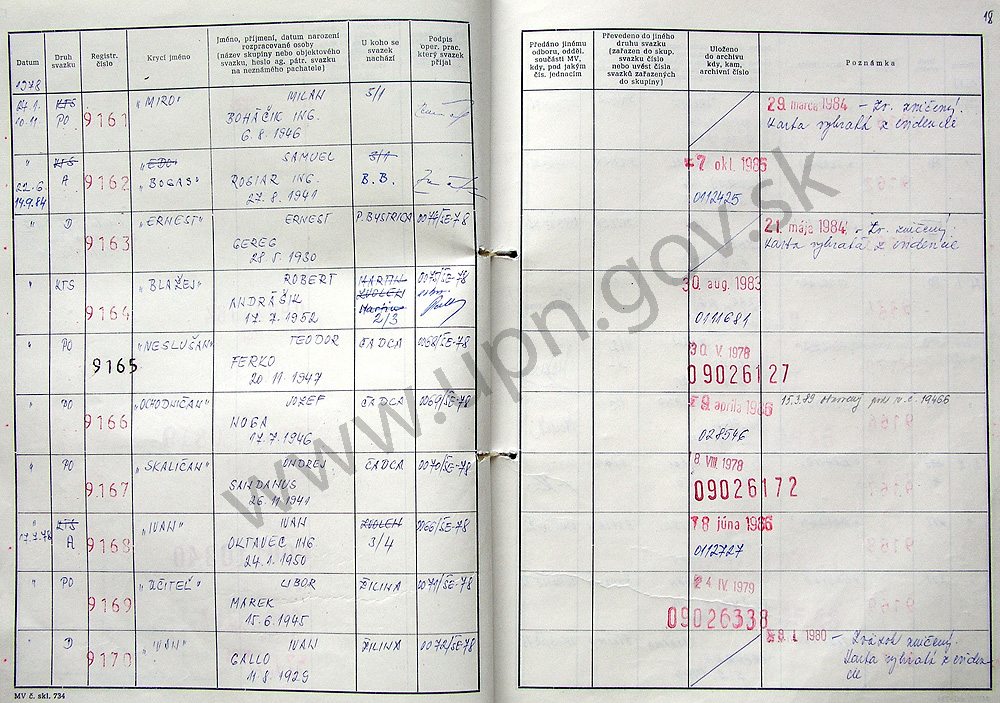 18
Datum
Druh svazku
Registr. číslo
Krycí jméno
Jméno, příjmení, datum narození
rozpracované osoby
(název skupiny nebo objektového
svazku, heslo ag. pátr. svazku
na neznámého pachatele)
U koho se
svazek
nachází
Podpis
oper. prac.
který svazek
přijal
Předáno jinému
odboru, odděl.
součásti MV,
kdy, pod jakým
čís. jednacím
Převedeno do jiného
druhu svazku
(zařazen do skup.
svazku číslo
nebo uvést čísla
svazků zařazených
do skupiny)
Uloženo
do archivu
kdy, kam,
archivní číslo
Poznámka
1978
27.1. KTS 9161 „MIRO" MILAN 5/1
10.11. PO BOHÁČIK ING.
6.8.1946
29. marca 1984 – Zv. zničený!
Karta vybratá z evidencie
" KTS 9162 „EDO" SAMUEL 3/1
22.6. A „BOGAS" ROGIAR ING. B.B.
14.9.84 27.8.1941
7 okt. 1986
0112425
" D 9163 „ERNEST" ERNEST P.BYSTRICA 0074/ŠE-78
GEREG
28.5.1930
21. mája 1984 – Zv. zničený.
Karta vybratá z evidencie
" KTS 9164 „BLAŽEJ" ROBERT MARTIN 0075/ŠE-78
ANDRÁŠIK ZVOLEN
17.7.1952 Martin
2/3
30. aug. 1983
0111681
" PO 9165 „NESLUŠAN" TEODOR ČADCA 0068/ŠE-78
FERKO
20.11.1947
30. V. 1978
09026127
" PO 9166 „OCHODNIČAN" JOZEF ČADCA 0069/ŠE-78
NOGA
17.7.1946
9 apríla 1986
028546
15.3.89 r.č. 19466
" PO 9167 „SKALIČAN" ONDREJ ČADCA 0070/ŠE-78
SANDANUS
26.11.1941
8. VIII. 1978
09026172
" KTS 9168 „IVAN" IVAN ZVOLEN 0066/ŠE-78
17.7.78 A OKTAVEC ING 3/4
24.1.1950
18 júna 1986
0112727
" PO 9169 „UČITEĽ" LIBOR ŽILINA 0071/ŠE-78
MAREK
15.6.1945
24 IV. 1979
09026338
" D 9170 „IVAN" IVAN ŽILINA 0072/ŠE-78
GALLO
11.8.1929
9. I. 1980 – Zväzok zničený.
Karta vybratá z eviden-
cie
MV č. skl. 734
www.upn.gov.sk